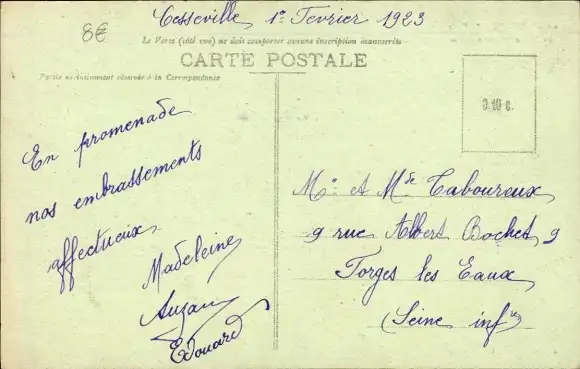 Tesseville 1er Fevrier 1923
8€
Le Verso (côté vue) ne doit comporter aucune inscription manuscrite
CARTE POSTALE
Partie exclusivement réservée à la Correspondance
0.10 c.
En promenade
nos embrassements
affectueux
Madeleine
Auzan
Edouard
Mr et Mde Taboureux
9 rue Albert Bochet 9
Forges les Eaux
(Seine infre)